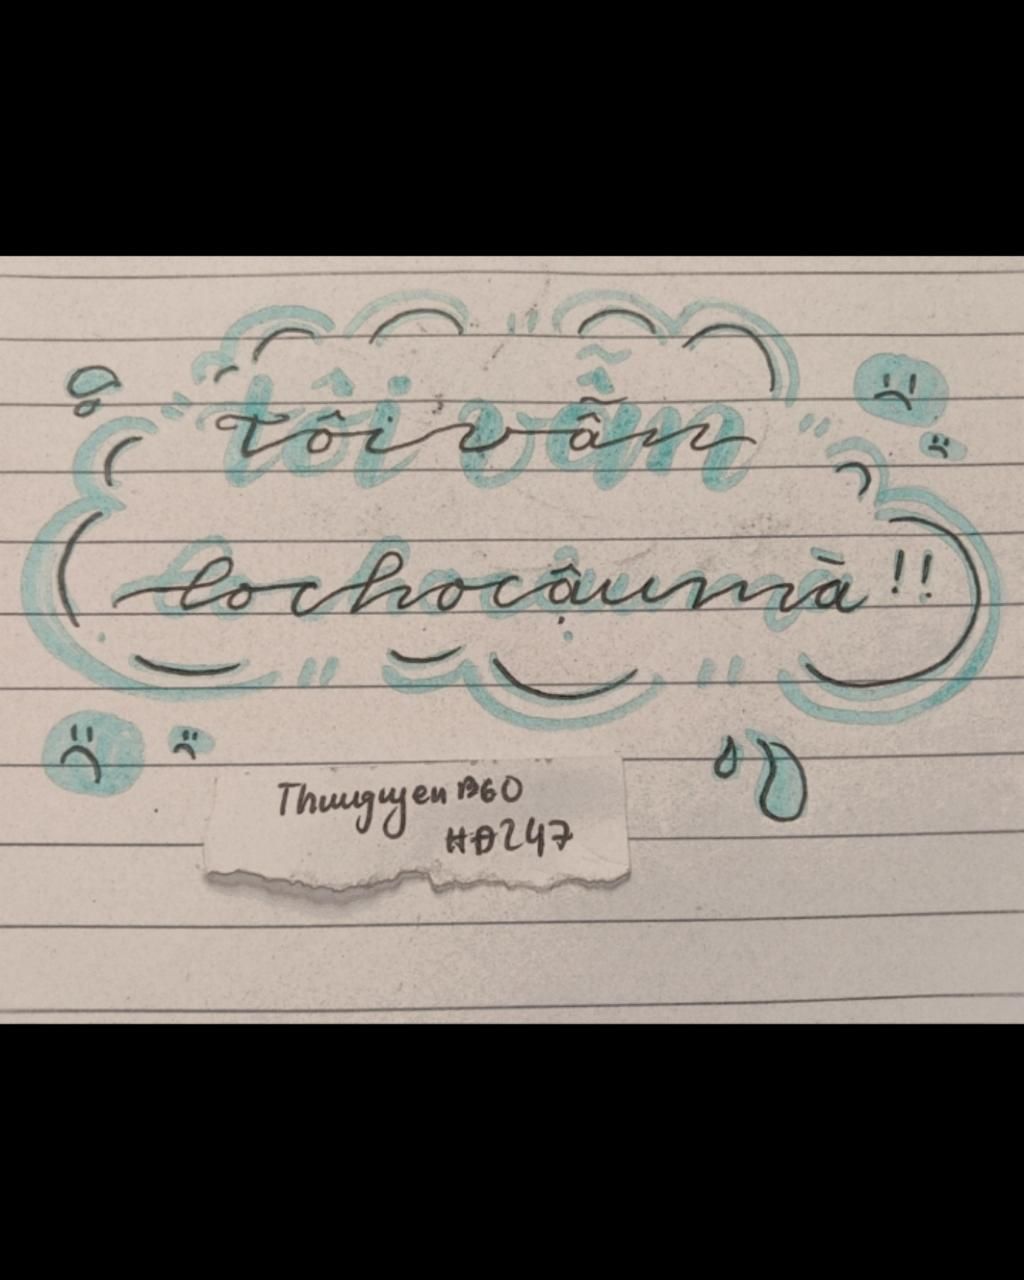 tôi vẫn
lo cho cậu mà !!
Thuuguyen B60
HĐ247